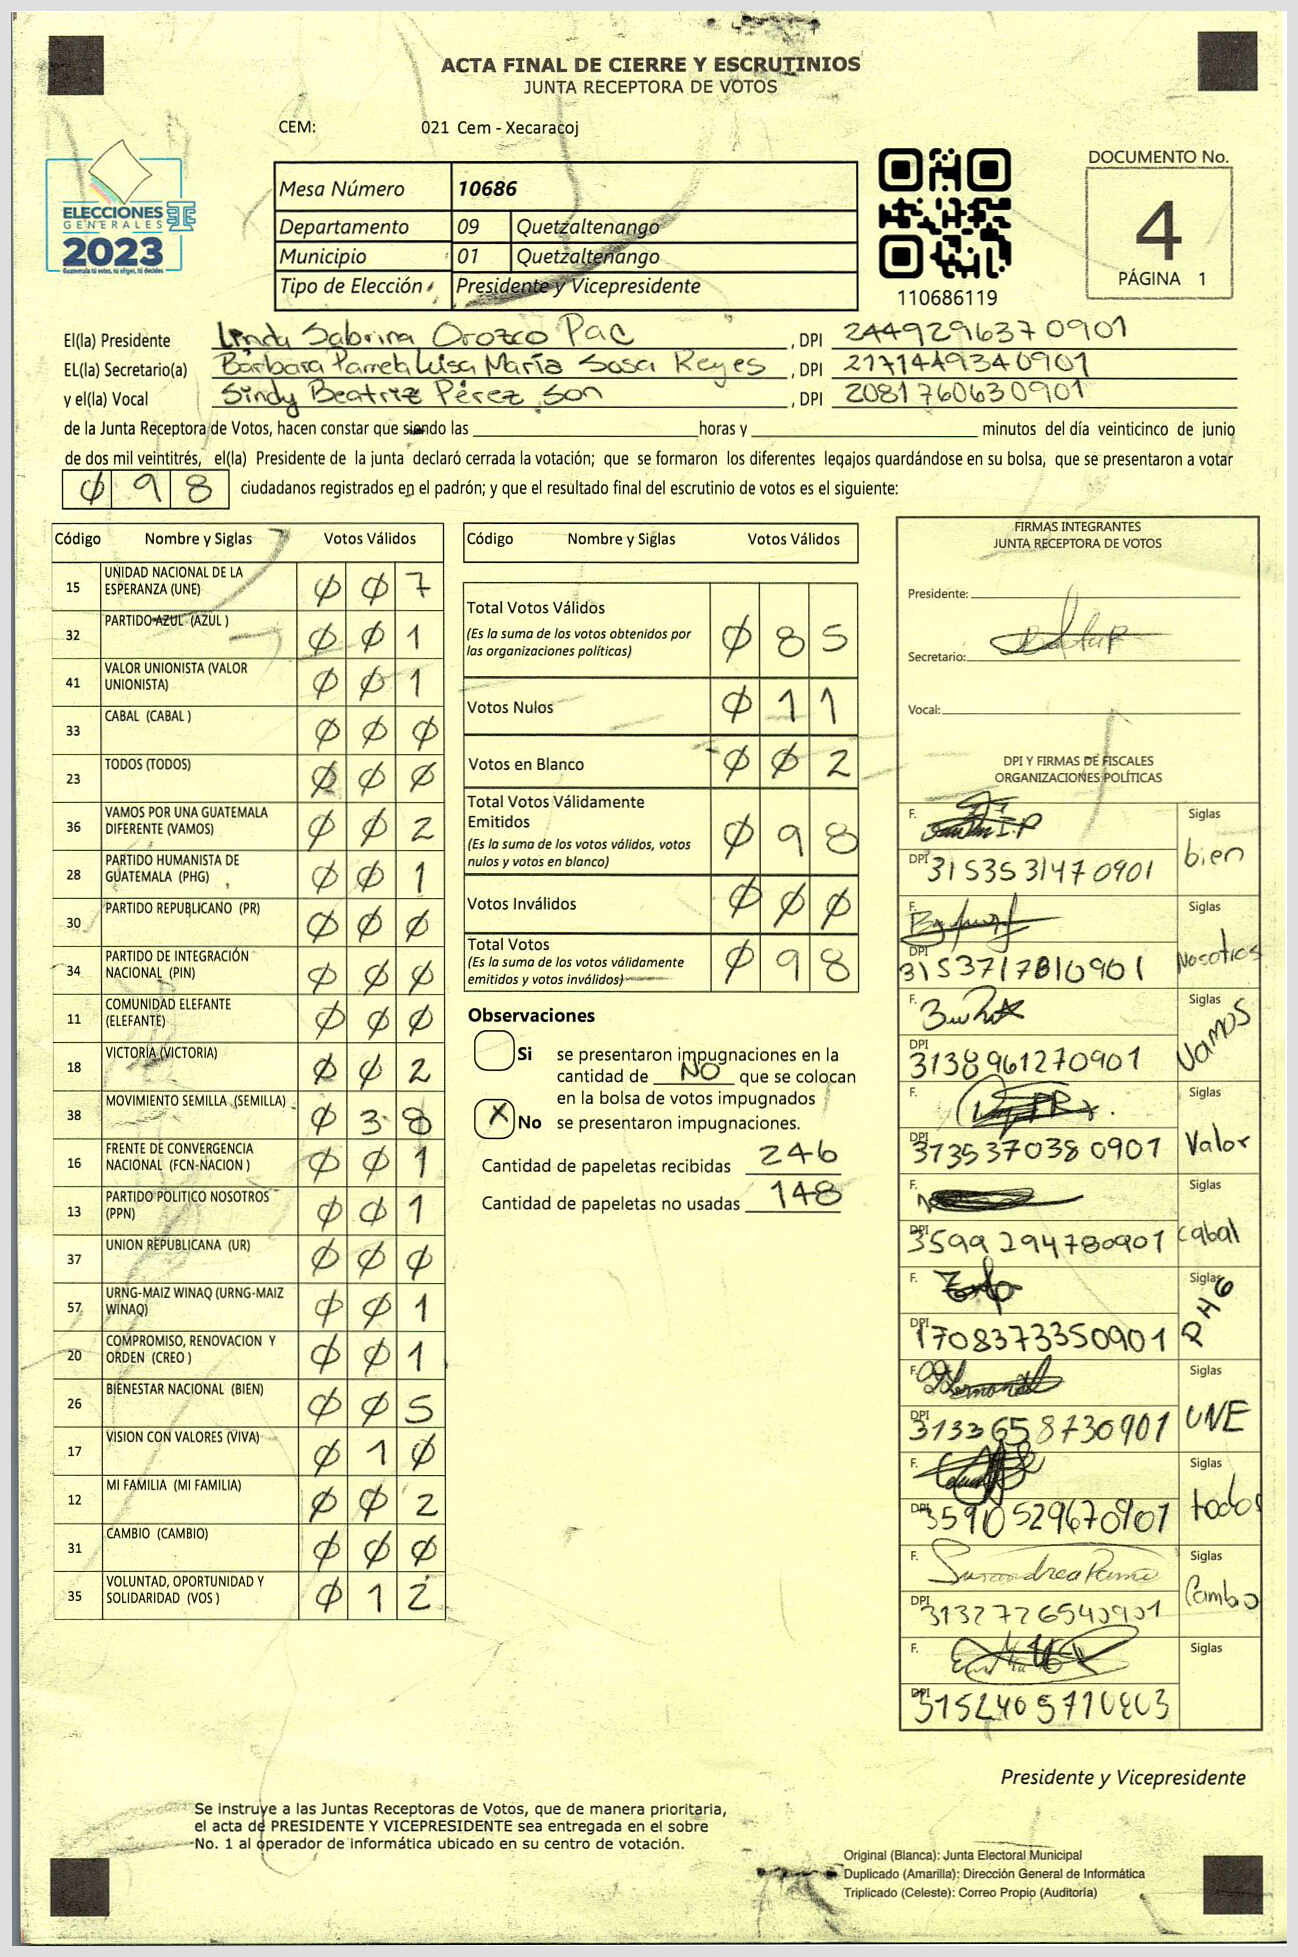 ACTA FINAL DE CIERRE Y ESCRUTINIOS
JUNTA RECEPTORA DE VOTOS
CEM: 021 Cem - Xecaracoj
ELECCIONES
GENERALES
2023
Guatemala tú votes, tú eliges, tú decides
Mesa Número 10686
Departamento 09 Quetzaltenango
Municipio 01 Quetzaltenango
Tipo de Elección Presidente y Vicepresidente
110686119
DOCUMENTO No.
4
PÁGINA 1
El(la) Presidente Linda Sabrina Orozco Pac, DPI 2449296370901
EL(la) Secretario(a) Bárbara Pamela Luisa María Sosa Reyes, DPI 2171449340901
y el(la) Vocal Sindy Beatriz Pérez Son, DPI 2081760630901
de la Junta Receptora de Votos, hacen constar que siendo las horas y minutos del día veinticinco de junio
de dos mil veintitrés, el(la) Presidente de la junta declaró cerrada la votación; que se formaron los diferentes legajos guardándose en su bolsa, que se presentaron a votar
Ø 9 8 ciudadanos registrados en el padrón; y que el resultado final del escrutinio de votos es el siguiente:
Código Nombre y Siglas Votos Válidos
15 UNIDAD NACIONAL DE LA ESPERANZA (UNE) Ø Ø 7
32 PARTIDO AZUL (AZUL ) Ø Ø 1
41 VALOR UNIONISTA (VALOR UNIONISTA) Ø Ø 1
33 CABAL (CABAL ) Ø Ø Ø
23 TODOS (TODOS) Ø Ø Ø
36 VAMOS POR UNA GUATEMALA DIFERENTE (VAMOS) Ø Ø 2
28 PARTIDO HUMANISTA DE GUATEMALA (PHG) Ø Ø 1
30 PARTIDO REPUBLICANO (PR) Ø Ø Ø
34 PARTIDO DE INTEGRACIÓN NACIONAL (PIN) Ø Ø Ø
11 COMUNIDAD ELEFANTE (ELEFANTE) Ø Ø Ø
18 VICTORIA (VICTORIA) Ø Ø 2
38 MOVIMIENTO SEMILLA (SEMILLA) Ø 3 8
16 FRENTE DE CONVERGENCIA NACIONAL (FCN-NACION ) Ø Ø 1
13 PARTIDO POLITICO NOSOTROS (PPN) Ø Ø 1
37 UNION REPUBLICANA (UR) Ø Ø Ø
57 URNG-MAIZ WINAQ (URNG-MAIZ WINAQ) Ø Ø 1
20 COMPROMISO, RENOVACION Y ORDEN (CREO ) Ø Ø 1
26 BIENESTAR NACIONAL (BIEN) Ø Ø 5
17 VISION CON VALORES (VIVA) Ø 1 Ø
12 MI FAMILIA (MI FAMILIA) Ø Ø 2
31 CAMBIO (CAMBIO) Ø Ø Ø
35 VOLUNTAD, OPORTUNIDAD Y SOLIDARIDAD (VOS ) Ø 1 2
Código Nombre y Siglas Votos Válidos
Total Votos Válidos Ø 8 5
(Es la suma de los votos obtenidos por
las organizaciones políticas)
Votos Nulos Ø 1 1
Votos en Blanco Ø Ø 2
Total Votos Válidamente
Emitidos Ø 9 8
(Es la suma de los votos válidos, votos
nulos y votos en blanco)
Votos Inválidos Ø Ø Ø
Total Votos Ø 9 8
(Es la suma de los votos válidamente
emitidos y votos inválidos)
Observaciones
Si se presentaron impugnaciones en la
cantidad de NO que se colocan
en la bolsa de votos impugnados
X No se presentaron impugnaciones.
Cantidad de papeletas recibidas 246
Cantidad de papeletas no usadas 148
FIRMAS INTEGRANTES
JUNTA RECEPTORA DE VOTOS
Presidente:
Secretario:
Vocal:
DPI Y FIRMAS DE FISCALES
ORGANIZACIONES POLÍTICAS
F. Siglas
DPI 3153531470901 bien
F. Siglas
DPI 3153717810901 Nosotros
F. Siglas
DPI 3138961270901 Vamos
F. Siglas
DPI 3135370380901 Valor
F. Siglas
DPI 3599294780901 Cabal
F. Siglas
DPI 1708373350901 PHG
F. Siglas
DPI 3133658730901 UNE
F. Siglas
DPI 3590529670901 todos
F. Siglas
DPI 3132726540901 Cambio
F. Siglas
DPI
Presidente y Vicepresidente
Se instruye a las Juntas Receptoras de Votos, que de manera prioritaria,
el acta de PRESIDENTE Y VICEPRESIDENTE sea entregada en el sobre
No. 1 al operador de informática ubicado en su centro de votación.
Original (Blanca): Junta Electoral Municipal
Duplicado (Amarilla): Dirección General de Informática
Triplicado (Celeste): Correo Propio (Auditoría)